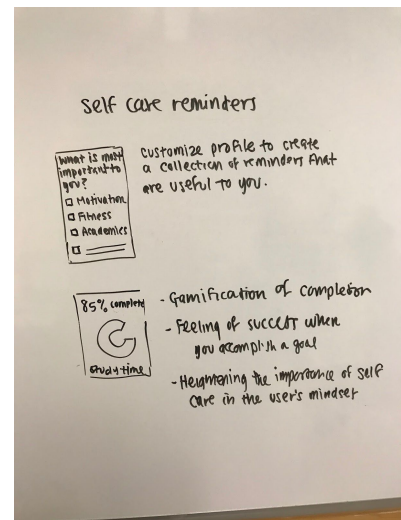 self care reminders
What is most
important to
you?
Motivation
Fitness
Academics
customize profile to create
a collection of reminders that
are useful to you.
85% complete
study time
- Gamification of completion
- Feeling of success when
you accomplish a goal
- Heightening the importance of self
care in the user's mindset